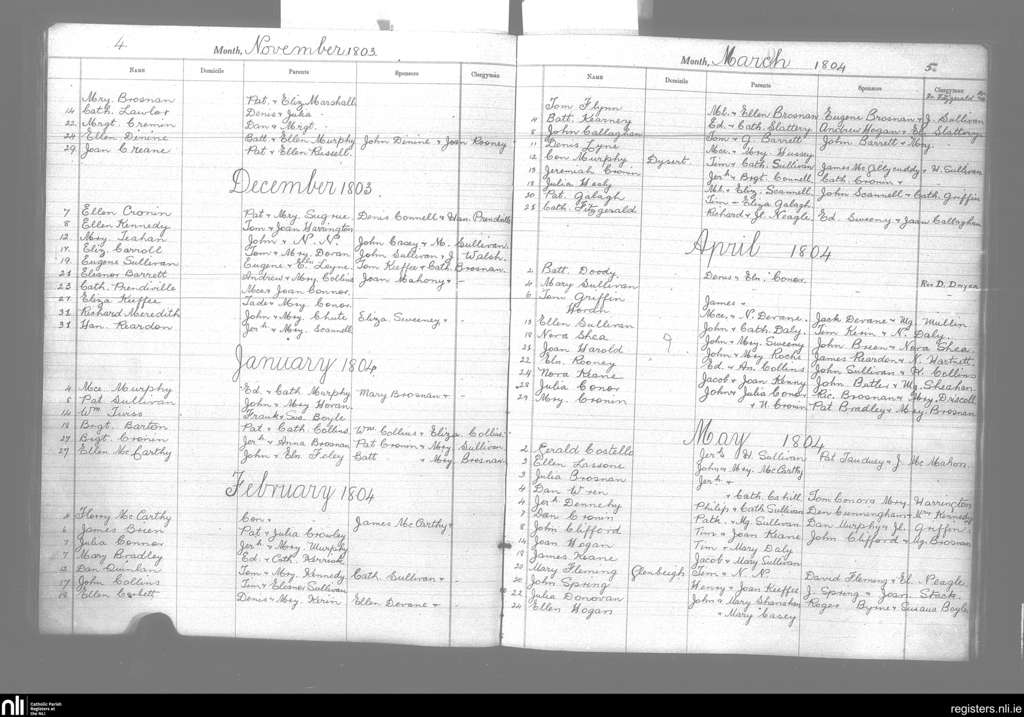 4
Month, November 1803.
Name Domicile Parents Sponsors Clergyman
Mary Brosnan Pat. + Eliz Marshall
14 Cath. Lawlor Denis + Julia
22 Mrgt. Cremin Dan + Mrgt.
24 Ellen Dinine Batt. + Ellen Murphy John Dinine + Joan Rooney
29 Joan Creane Pat + Ellen Russell.
December 1803.
7 Ellen Cronin Pat + Mary Sugrue Denis Connell + Han. Prendiville
8 Ellen Kennedy Tom + Joan Harrington
12 Mary Teahan John + N. N. John Casey + M. Sullivan.
17 Eliz Carroll Tom + Mary Doran John Sullivan + J. Walsh.
19 Eugene Sullivan Eugene + Eln Leyne Tom Keeffe + Cath. Brosnan.
21 Eleanor Barrett Andrew + Mary Collins Joan Mahony + -
23 Cath. Prendiville Mce + Joan Connor.
27 Eliza Keeffee Tade + Mary Conor.
31 Richard Meredith John + Mary Chute Eliza Sweeney +
31 Han. Reardon Jerh + Mary Scannell
January 1804
4 Mce Murphy Ed. + Cath Murphy Mary Brosnan +
5 Pat Sullivan John + Mary Horan.
14 Wm Twiss Frank + Sus. Boyle
18 Brgt. Barton Pat + Cath. Collins Wm Collins + Eliza Collins
27 Brgt. Cronin Jerh + Anna Brosnan Pat Crown + Mary Sullivan
27 Ellen McCarthy John + Eln Foley Batt + Mary Brosnan
February 1804
4 Florry McCarthy Con + James McCarthy +
6 James Breen Pat + Julia Crowley
7 Julia Connor Jerh + Mary Murphy
7 Mary Bradley Ed. + Cath. Kerrisk
13 Dan Quinlan Tom + Mary Kennedy Cath. Sullivan + -
17 John Collins Tim + Eleanor Sullivan
18 Ellen Corbett Denis + Mary Kirin Ellen Devane +
Month, March 1804 5.
Name Domicile Parents Sponsors Clergyman
Tom Flynn Ml. + Ellen Brosnan Eugene Brosnan + J. Sullivan
Batt. Kearney Ed. + Cath. Slattery Andrew Hogan + Slattery
8 John Callaghan Tom + J. Barrett John Barrett + Mary
11 Denis Lyne Mce + Mary Hussey
12 Con Murphy Dysert Tim + Cath. Sullivan James McGllycuddy + W. Sullivan
13 Jeremiah Cronin Jerh + Brgt. Connell Cath. Cronin +
18 Julia Healy Ml. + Eliz. Scannell John Scannell + Cath. Griffin
20 Pat. Galagh Tim - Eliza Galagh
25 Cath. Fitzgerald Richard + Jl. Neagle Ed. Sweeny + Joan Callaghan
April 1804
2 Batt. Doody. Denis + Eln. Conor. Rev D. Dwyer
4 Mary Sullivan
6 Tom Griffin James +
Horan Mce. + N. Devane. Jack Devane + Mg. Mullin
13 Ellen Sullivan John + Cath. Daly. Tom Kirin + N. Daly.
19 Nora Shea John + Mary Sweeny John Breen + Nora Shea
21 Joan Harold ? John + Mary Roche James Reardon + K. Hartnett
22 Eln. Rooney Ed. + An. Collins John Sullivan + Collins
24 Nora Keane Jacob + Joan Kenny John Butler + Mg. Sheahan
28 Julia Conor John + Julia Conor Ric. Brosnan + Mary Driscoll
29 Mary Cronin + N. Cronin Pat Bradley + Mary Brosnan
May 1804
2 Gerald Costelle Jerh + H. Sullivan Pat Tauduey + J. McMahon
3 Ellen Lassone John + Mary McCarthy
3 Julia Brosnan Jerh +
4 Dan Wren + Cath. Cahill Tom Conor + Mary Harrington
4 Jerh Dennehy Philip + Cath Sullivan Den Cunningham + Kennedy
7 Dan Cronin Patk. + Mg. Sullivan Dan Murphy + Jl. Griffin
8 John Clifford Tim + Joan Keane John Clifford + Mg. Brosnan
14 Joan Hogan Tim + Mary Daly.
19 James Keane Jacob + Mary Sullivan
20 Mary Fleming Glenbeigh Tom + N. N. David Fleming + El. Neagle.
20 John Spring Henry + Joan Keeffee J. Spring + Joan. Stack.
22 Julia Donovan John + Mary Shanahan Roger Byrne + Susana Boyle
24 Ellen Hogan + Mary Casey
nli Catholic Parish Registers at the NLI
registers.nli.ie